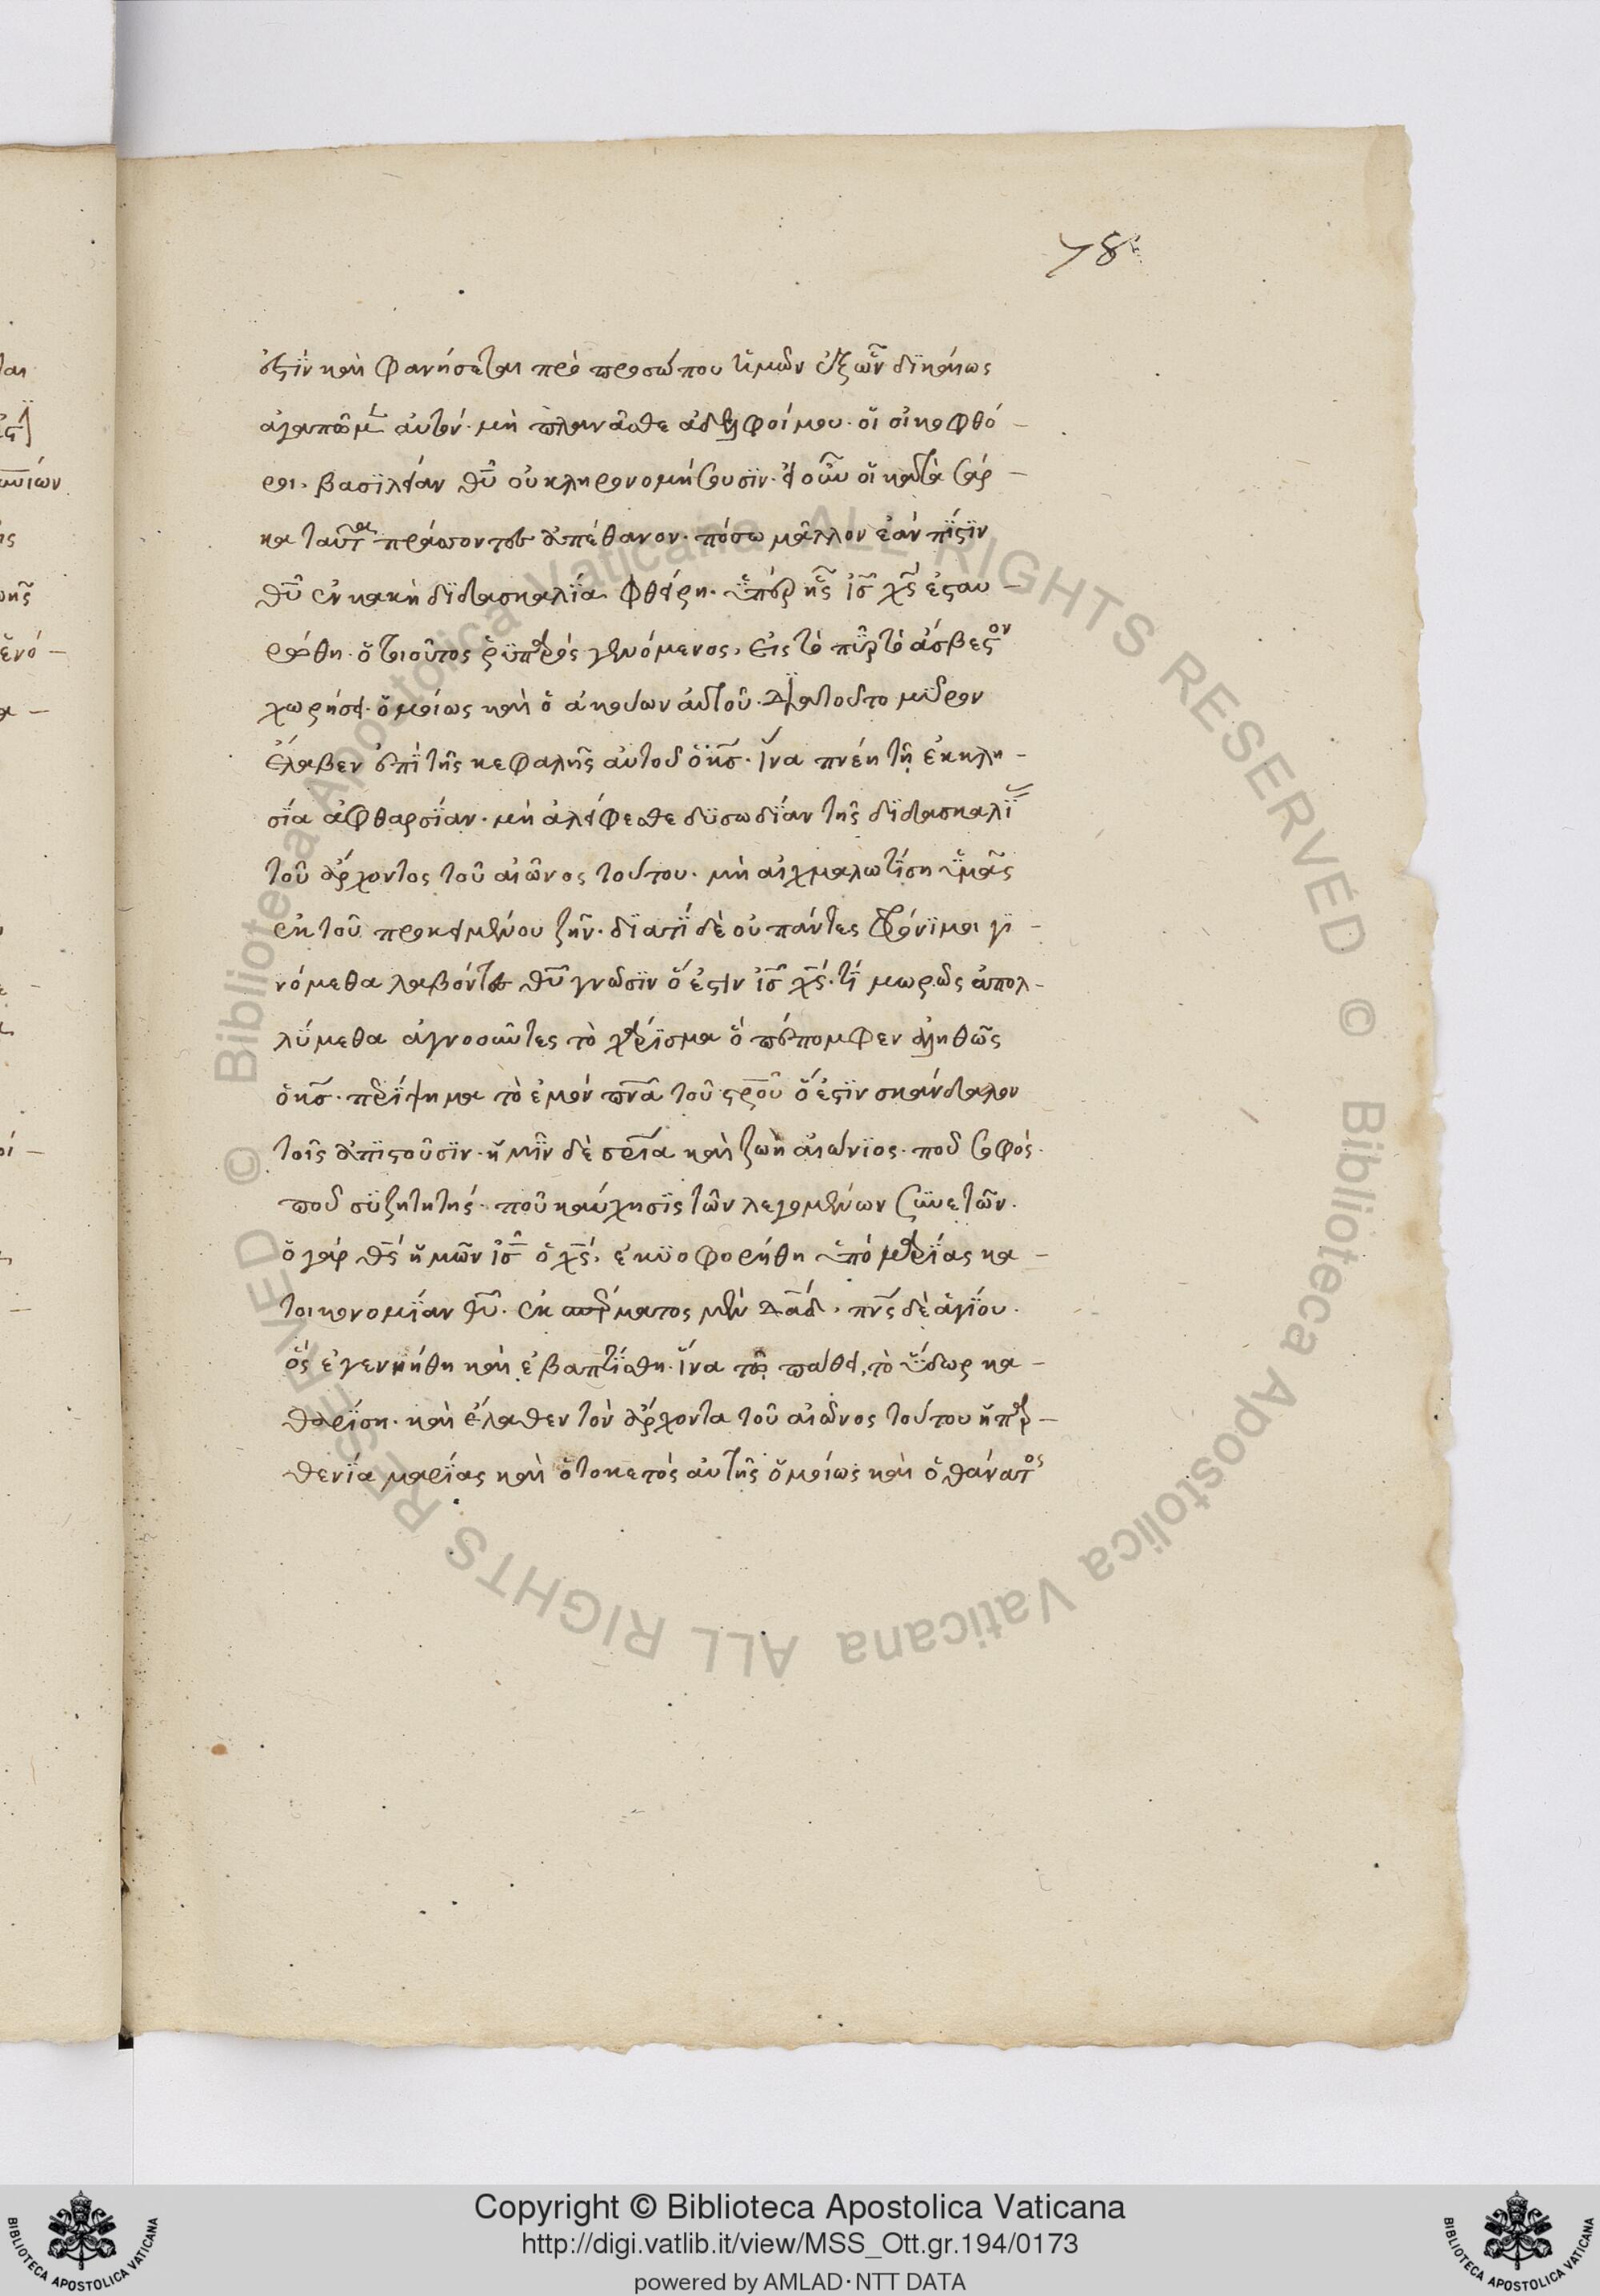 78
ἐστὶν καὶ φανήσεται πρὸ προσώπου ἡμῶν ἐξ ὧν δικαίως
ἀγαπῶμεν αὐτόν· μὴ πλανᾶσθε ἀδελφοί μου· οἱ οἰκοφθό-
ροι. βασιλείαν θυ̅ οὐ κληρονομήσουσιν· εἰ οὖν οἱ κατὰ σάρ-
κα ταῦτα πράσσοντες ἀπέθανον· πόσω μᾶλλον ἐὰν πίστιν
θυ̅ ἐν κακὴ διδασκαλία φθείρη· ὑπὲρ ἧς ἰσ̅ χσ̅ ἐσταυ-
ρώθη· ὅτι οὗτος ῥυπαρὸς γενόμενος, εἰς τὸ πῦρ τὸ ἄσβεστον
χωρήσει· ὁμοίως καὶ ὁ ἀκούων αὐτοῦ· διὰ τοῦτο μύρον
ἔλαβεν ἐπὶ τῆς κεφαλῆς αὐτοῦ ὁ κσ̅· ἵνα πνέη τῇ ἐκκλη-
σία ἀφθαρσίαν· μὴ ἀλείφεσθε δυσωδίαν τῆς διδασκαλί
τοῦ ἄρχοντος τοῦ αἰῶνος τούτου· μὴ αἰχμαλωτίση ὑμᾶς
ἐκ τοῦ προκειμένου ζῆν· διατί δὲ οὐ πάντες φρόνιμοι γι-
νόμεθα λαβόντες θυ̅ γνῶσιν ὅ ἐστιν ἰσ̅ χσ̅· τί μωρῶς ἀπολ-
λύμεθα ἀγνοοῦντες τὸ χάρισμα ὃ πέπομφεν ἀληθῶς
ὁ κσ̅· περίψημα τὸ ἐμὸν πνα̅ τοῦ στρου̅ ὅ ἐστιν σκάνδαλον
τοῖς ἀπιστοῦσιν· ἡμῖν δὲ σρια̅ καὶ ζωὴ αἰώνιος· ποῦ σοφός·
ποῦ συζητητής· ποῦ καύχησις τῶν λεγομένων συνετῶν·
ὁ γὰρ θσ̅ ἡμῶν ἰσ̅ ὁ χσ̅, ἐκυοφορήθη ὑπὸ μαρίας κα-
τοικονομίαν θυ̅· ἐκ σπέρματος μὲν δαδ̅, πνσ̅ δὲ ἁγίου·
ὃς ἐγεννήθη καὶ ἐβαπτίσθη· ἵνα τῷ πάθει, τὸ ὕδωρ κα-
θαρίση· καὶ ἔλαθεν τὸν ἄρχοντα τοῦ αἰῶνος τούτου ἡ παρ-
θενία μαρίας καὶ ὁ τοκετὸς αὐτῆς ὁμοίως καὶ ὁ θάνατος
Copyright © Biblioteca Apostolica Vaticana
http://digi.vatlib.it/view/MSS_Ott.gr.194/0173
powered by AMLAD·NTT DATA